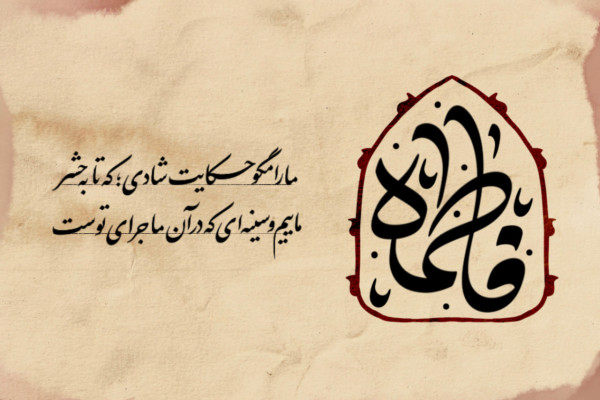 ما را مگو حکایت شادی؛ که تا به حشر
ماییم و سینه‌ای که در آن ماجرای توست
فاطمه